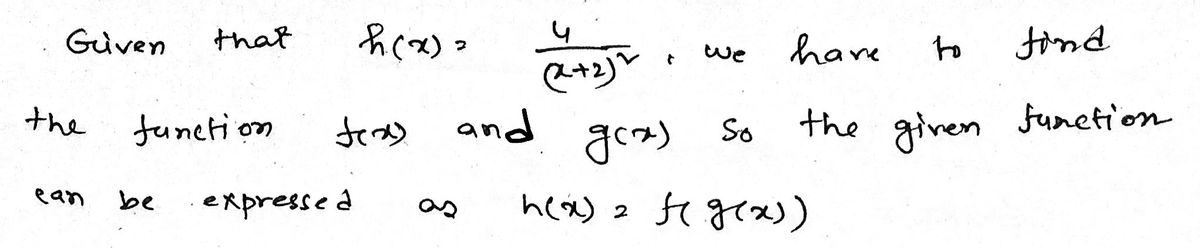 Given that h(x) = 4/(x+2)², we have to find
the function f(x) and g(x) so the given function
can be expressed as h(x) = f(g(x))